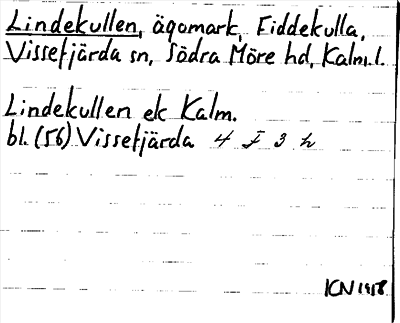 Lindekullen, ägomark, Fiddekulla,
Vissefjärda sn, Södra Möre hd, Kalm. l.
Lindekullen ek Kalm.
bl. (56) Vissefjärda 4 F 3 h
ICN 1958